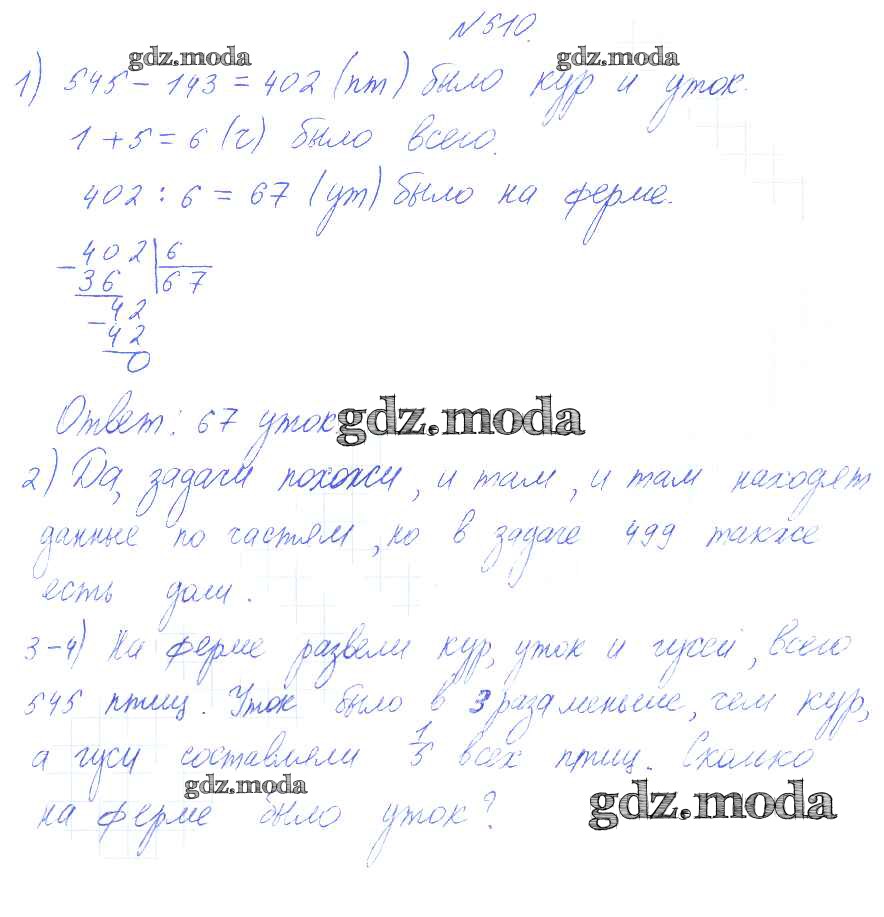 № 510.
gdz.moda gdz.moda
1) 545 - 143 = 402 (пт) было кур и уток.
1 + 5 = 6 (ч) было всего.
402 : 6 = 67 (ут) было на ферме.
- 402 | 6
36 67
- 42
42
0
Ответ: 67 уток
gdz.moda
2) Да, задачи похожи, и там, и там находят
данные по частям, но в задаче 499 также
есть доли.
3-4) На ферме развели кур, уток и гусей, всего
545 птиц. Уток было в 3 раза меньше, чем кур,
а гуси составляли 1/5 всех птиц. Сколко
gdz.moda
на ферме было уток?
gdz.moda